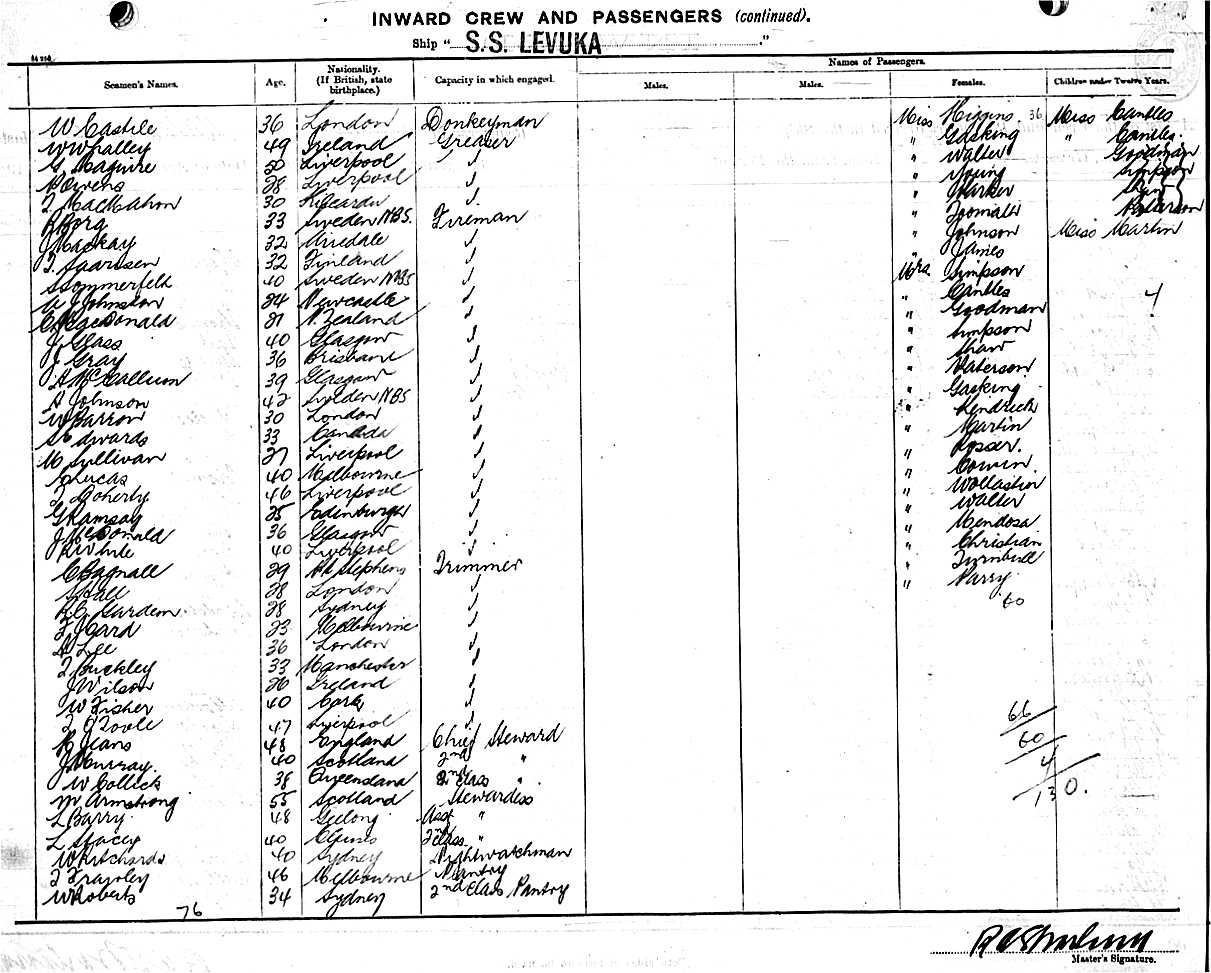 INWARD CREW AND PASSENGERS (continued).
Ship "S.S. LEVUKA"
Names of Passengers.
Seamen's Names. Age. Nationality. (If British, state birthplace.) Capacity in which engaged. Males. Males. Females. Children under Twelve Years.
W Castile 36 London Donkeyman Miss Higgins 36 Miss Cantles
W Whalley 49 Ireland Greaser " Gasking " Cantles
G Maguire Liverpool " Walter Goodman
P Owens 28 Liverpool " Young Simpson
T MacMahon 30 " Parker
R Borg 33 Sweden NBS. Fireman " Paterson
J Mackay 32 Airedale " Johnson Miss Martin
T. Saarissen 32 Finland " James
Sommerfelt 40 Sweden NBS Mrs Simpson
W J Johnston 24 Newcastle " Cantles 4
MacDonald 21 N. Zealand " Goodman
J Glass 40 Glasgow " Simpson
J Gray 36 Brisbane " Shaw
A McCallum 39 Glasgow " Paterson
A Johnson 42 Sweden NBS " Gasking
W Barron 30 London " Hendrick
S Edwards 33 Canada " Martin
M Sullivan 27 Liverpool " Rosser.
Lucas 40 Melbourne " Cowen.
T Doherty 46 Liverpool " Wollaston
G Ramsay 25 Edinburgh " Walter
J McDonald 36 Glasgow " Mendosa
R White 40 Liverpool " Christian
C Bagnall 29 Pt Stephens Trimmer " Turnbull
S Hall 28 London " Parry
R. C. Gardem 28 Sydney 60
F. Ward 23 Melbourne
A Lee 36 London
T Buckley 33 Manchester
J Wilson 26 Ireland
W Fisher 40 Cork
T O'Toole 47 Liverpool 66
H Jeans 48 England Chief Steward 60
J Murray. 40 Scotland 2nd " 4
W Collick 38 Queensland 2nd Class " 130.
M Armstrong 55 Scotland Stewardess
L Barry 48 Geelong Asst "
L Stacey 40 "
W Pritchards 40 Sydney Nightwatchman
T Frawley 46 Melbourne Pantry
W Roberts 34 Sydney 2nd Class Pantry
76
Master's Signature.